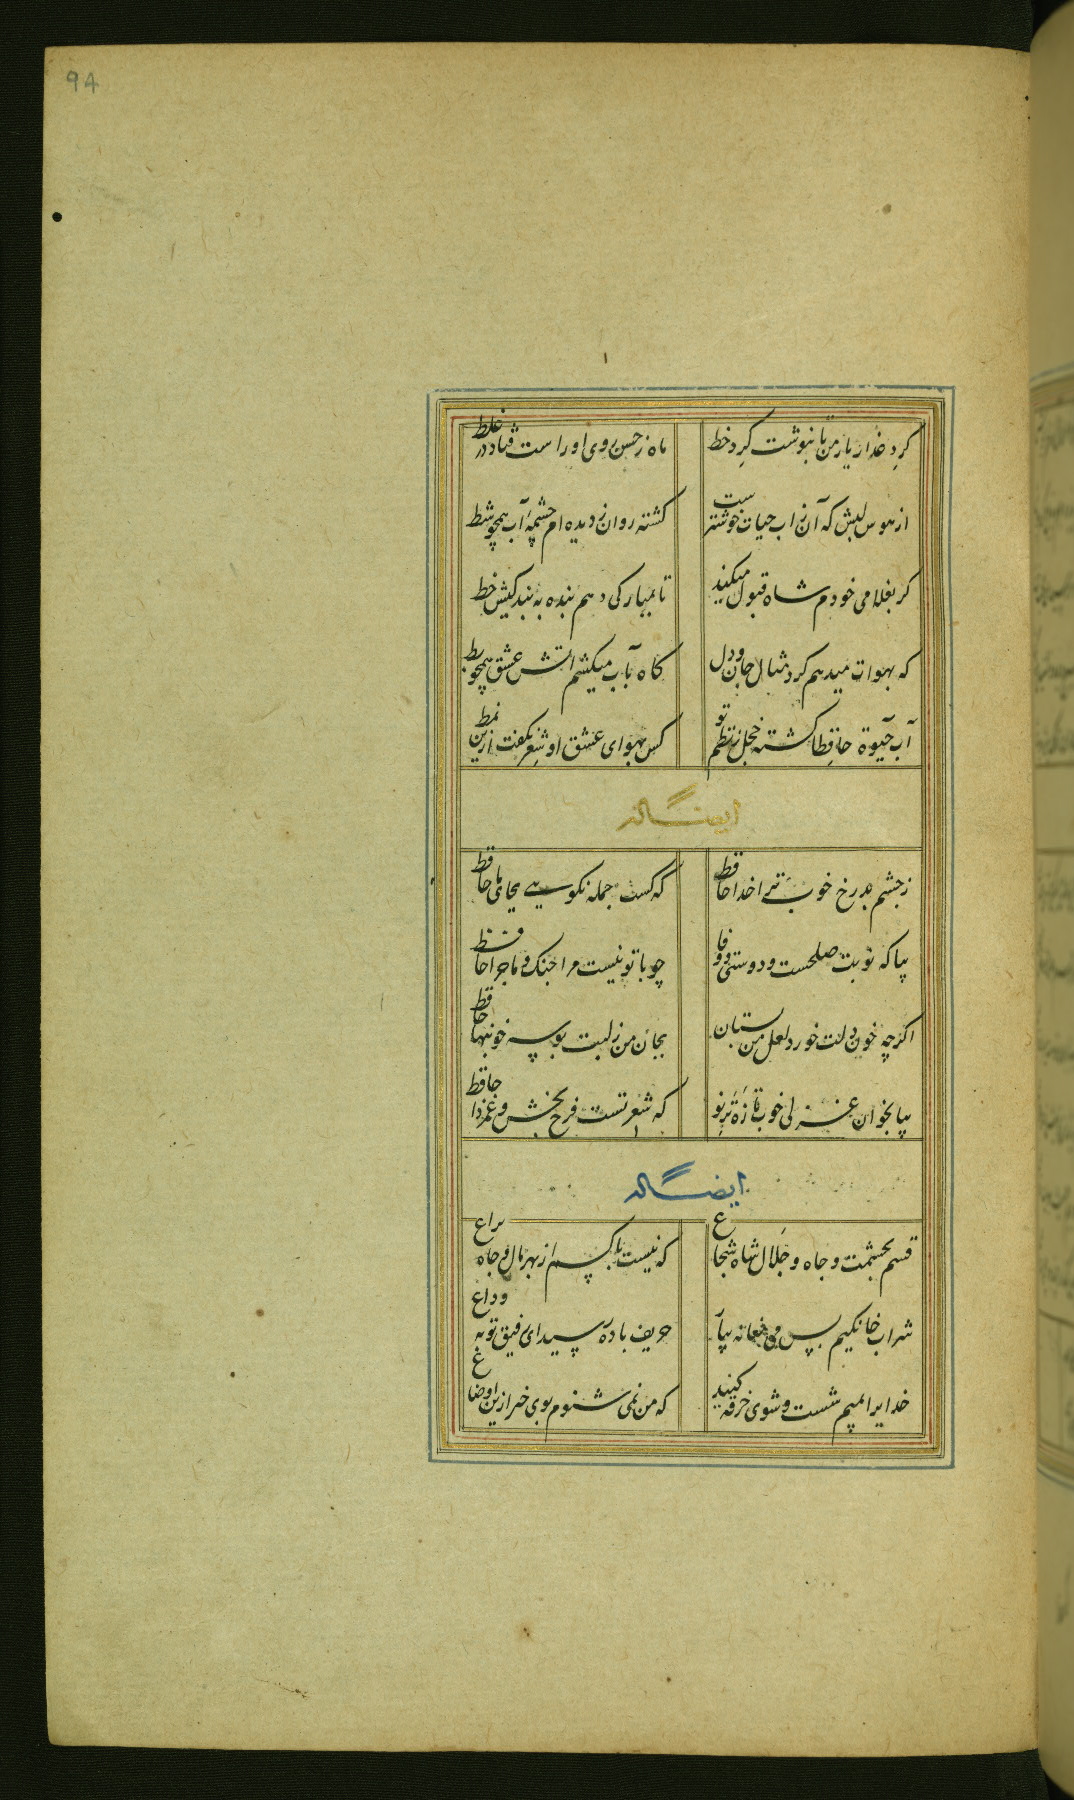 94
کرد عذار یار من تا بنوشت کرد خط
ماه ز حسن روی او راست فتاد در غلط
از هوس لبش که آن ز آب حیات خوشترست
کشته روان ز دیده ام چشمهٔ آب همچو شط
کر بغلامی خودم شاه قبول میکند
تا بمبارکی دهم بنده به بندکیش خط
که بهوات میدهم کرد مثال جان و دل
کاه بآب میکشم آتش عشق همچو بط
آب حیوة حافظا کشته خجل ز نظم تو
کس بهوای عشق او شعر نکفت ازین نمط
ایضاً له
ز چشم بد رخ خوب ترا خدا حافظ
که کست جمله نکویی بجای ما حافظ
بیا که نوبت صلحست و دوستی و وفا
چو با تو نیست مرا جنک و ماجرا حافظ
اکر چه خون دلت خورد لعل من بستان
بجان من ز لبت بوسه خونبها حافظ
بیا بخوان غزلی خوب تازهٔ تر نو
که شعر تست فرح بخش و غمزدا حافظ
ایضاً له
قسم بحشمت و جاه و جلال شاه شجاع
که نیست با کسم از بهر مال و جاه نزاع
شراب خانکیم بس می مغانه بیار
حریف باده رسید ای رفیق توبه وداع
خدایرا بمیم شست و شوی خرقه کنید
که من نمی شنوم بوی خیر ازین اوضاع